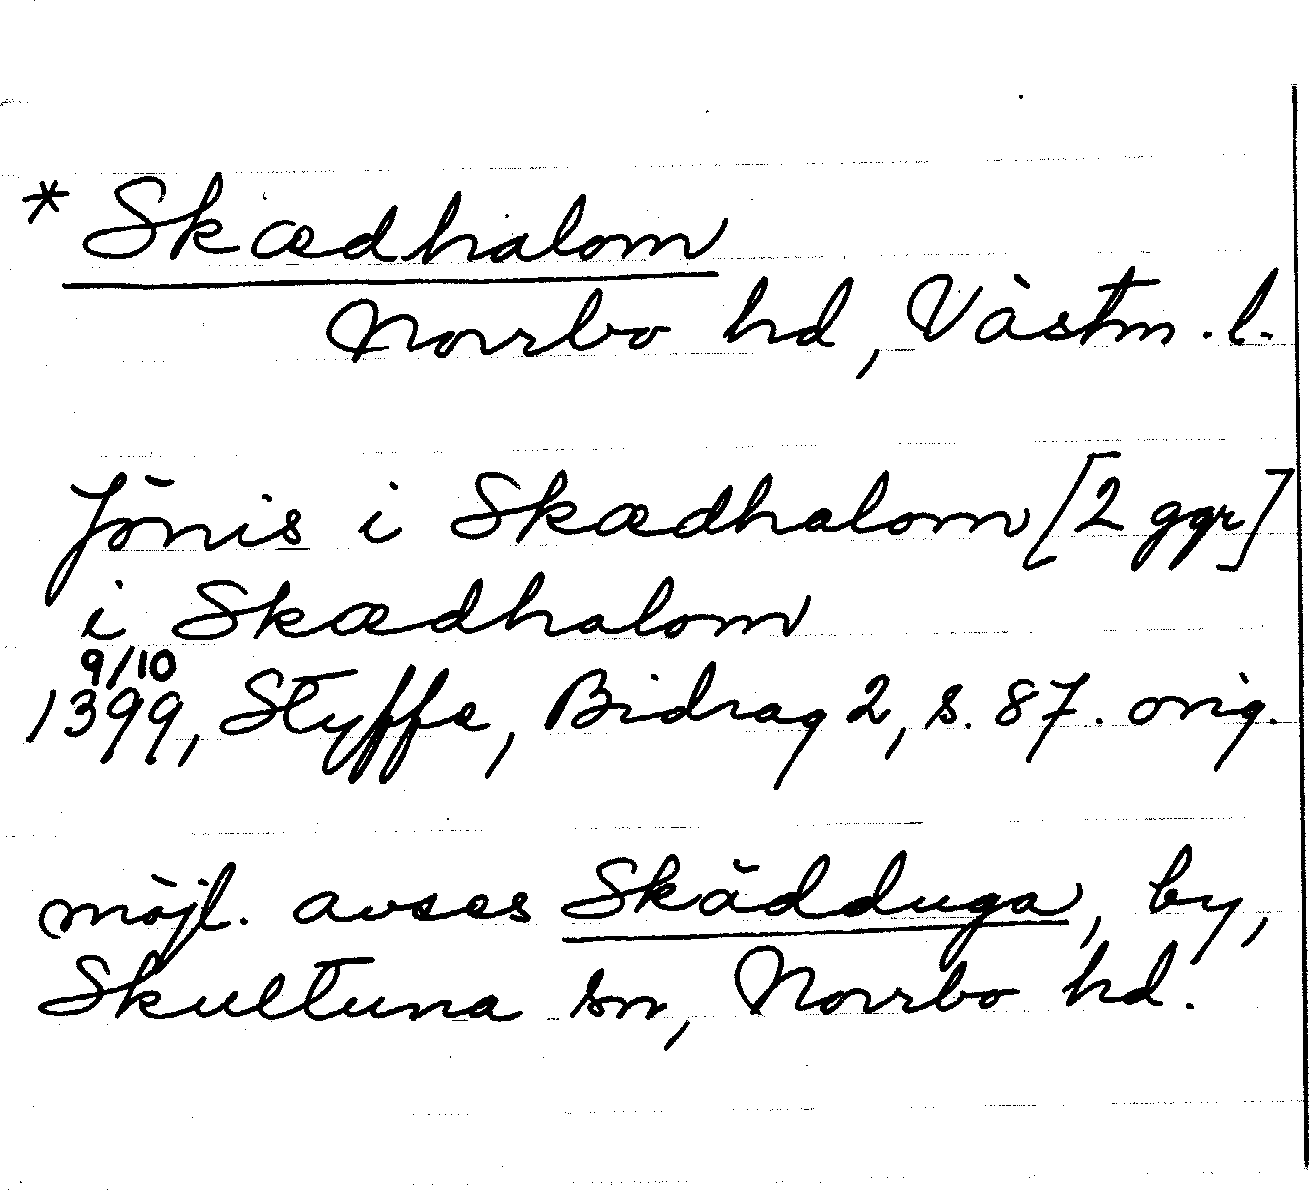 * Skædhalom
Norrbo hd, Västm. l.
Jönis i Skædhalom [2 ggr]
i Skædhalom
9/10
1399, Styffe, Bidrag 2, s. 87. orig.
möjl. avses Skädduga, by,
Skultuna sn, Norrbo hd.